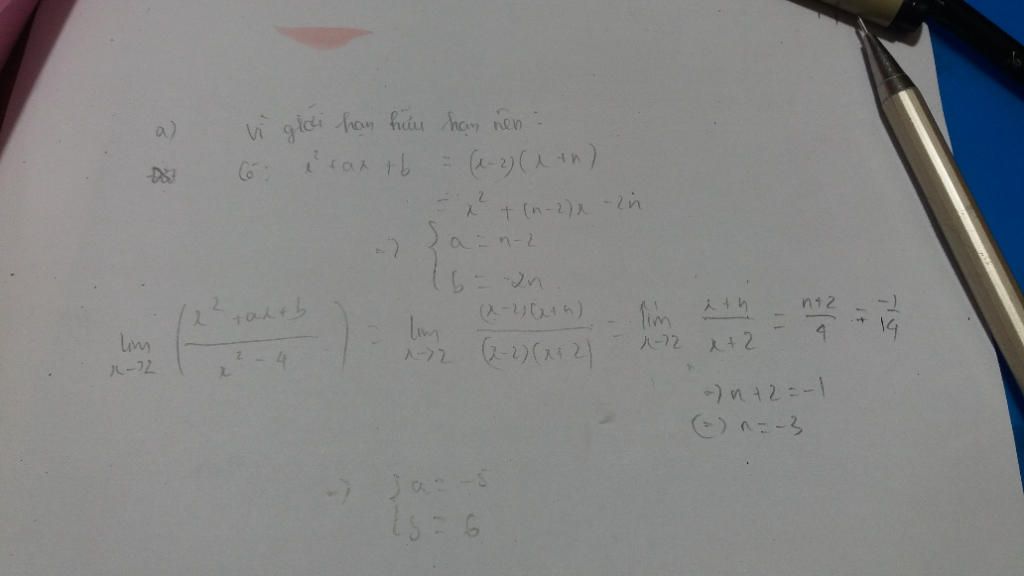 a) Vì giới hạn hữu hạn nên:
Có: x² + ax + b = (x-2)(x+n)
= x² + (n-2)x - 2n
=> { a = n-2
b = -2n
lim x→2 ( (x² + ax + b) / (x² - 4) ) = lim x→2 ((x-2)(x+n)) / ((x-2)(x+2)) = lim x→2 (x+n) / (x+2) = (n+2) / 4 = -1 / 14
=> n + 2 = -1
(=) n = -3
=> { a = -5
b = 6